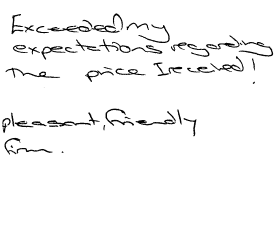 Exceeded my
expectations regarding
the price I received!
pleasant, friendly
firm.